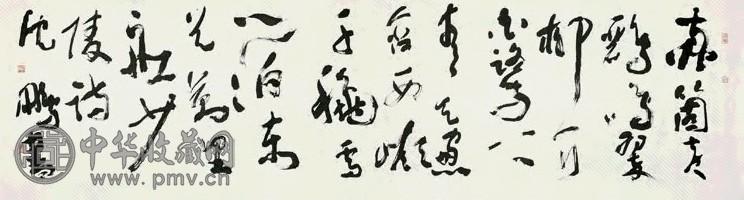 两箇黄
鹂鸣翠
柳一行
白鹭上
青天窗
含西岭
千秋雪
门泊东
吴万里
船少
陵诗
沈鹏书
中华收藏网
www.pmv.cn